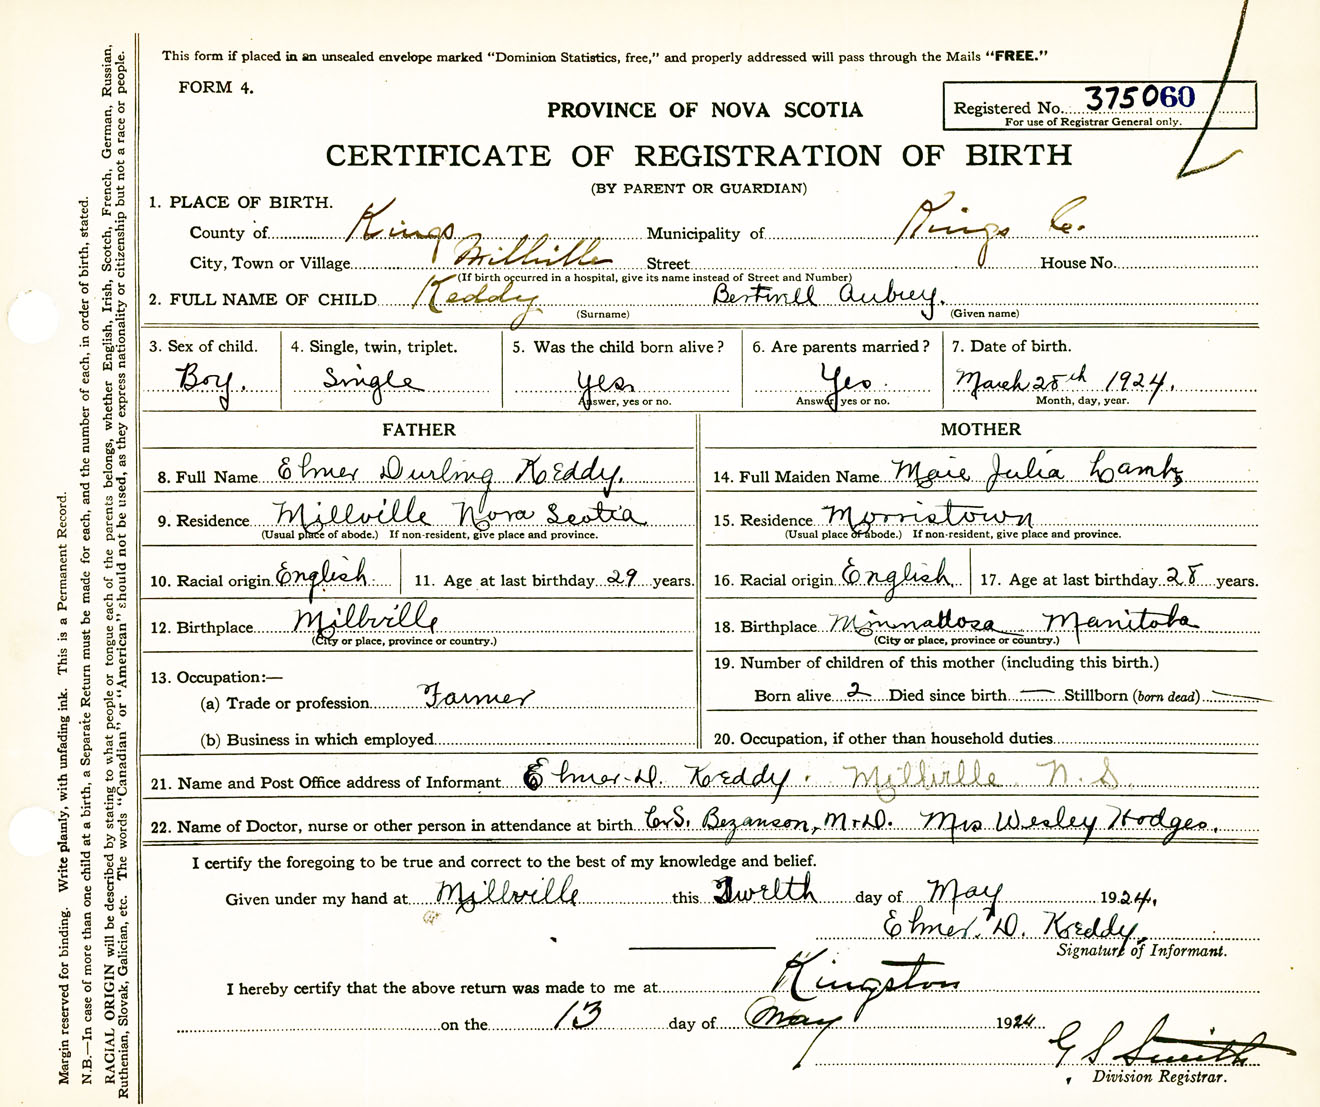 This form if placed in an unsealed envelope marked "Dominion Statistics, free," and properly addressed will pass through the Mails "FREE."
FORM 4.
Registered No. 375060
For use of Registrar General only.
PROVINCE OF NOVA SCOTIA
CERTIFICATE OF REGISTRATION OF BIRTH
(BY PARENT OR GUARDIAN)
1. PLACE OF BIRTH.
County of Kings Municipality of Kings Co.
City, Town or Village Millville Street House No.
(If birth occurred in a hospital, give its name instead of Street and Number)
2. FULL NAME OF CHILD Keddy Aubrey.
(Surname) (Given name)
3. Sex of child. 4. Single, twin, triplet. 5. Was the child born alive? 6. Are parents married? 7. Date of birth.
Boy. Single yes Yes. March 28th 1924.
Answer, yes or no. Answer, yes or no. Month, day, year.
FATHER MOTHER
8. Full Name Elmer Durling Keddy. 14. Full Maiden Name Maie Julia Lamb
9. Residence Millville Nova Scotia 15. Residence Morristown
(Usual place of abode.) If non-resident, give place and province. (Usual place of abode.) If non-resident, give place and province.
10. Racial origin English 11. Age at last birthday 29 years. 16. Racial origin English 17. Age at last birthday 28 years.
12. Birthplace Millville 18. Birthplace Minnadosa Manitoba
(City or place, province or country.) (City or place, province or country.)
19. Number of children of this mother (including this birth.)
13. Occupation:—
(a) Trade or profession Farmer Born alive 2 Died since birth — Stillborn (born dead) —
(b) Business in which employed 20. Occupation, if other than household duties
21. Name and Post Office address of Informant Elmer D. Keddy. Millville N.S
22. Name of Doctor, nurse or other person in attendance at birth C.S. Bezanson, M.D. Mrs Wesley Hodges.
I certify the foregoing to be true and correct to the best of my knowledge and belief.
Given under my hand at Millville this Twelth day of May 1924.
Elmer D. Keddy.
Signature of Informant.
I hereby certify that the above return was made to me at Kingston
on the 13 day of May 1924
G S Smith
Division Registrar.
Margin reserved for binding. Write plainly, with unfading ink. This is a Permanent Record.
N.B.—In case of more than one child at a birth, a Separate Return must be made for each, and the number of each, in order of birth, stated.
RACIAL ORIGIN will be described by stating to what people or tongue each of the parents belongs, whether English, Irish, Scotch, French, German, Russian,
Ruthenian, Slovak, Galician, etc. The words "Canadian" or "American" should not be used, as they express nationality or citizenship but not a race or people.